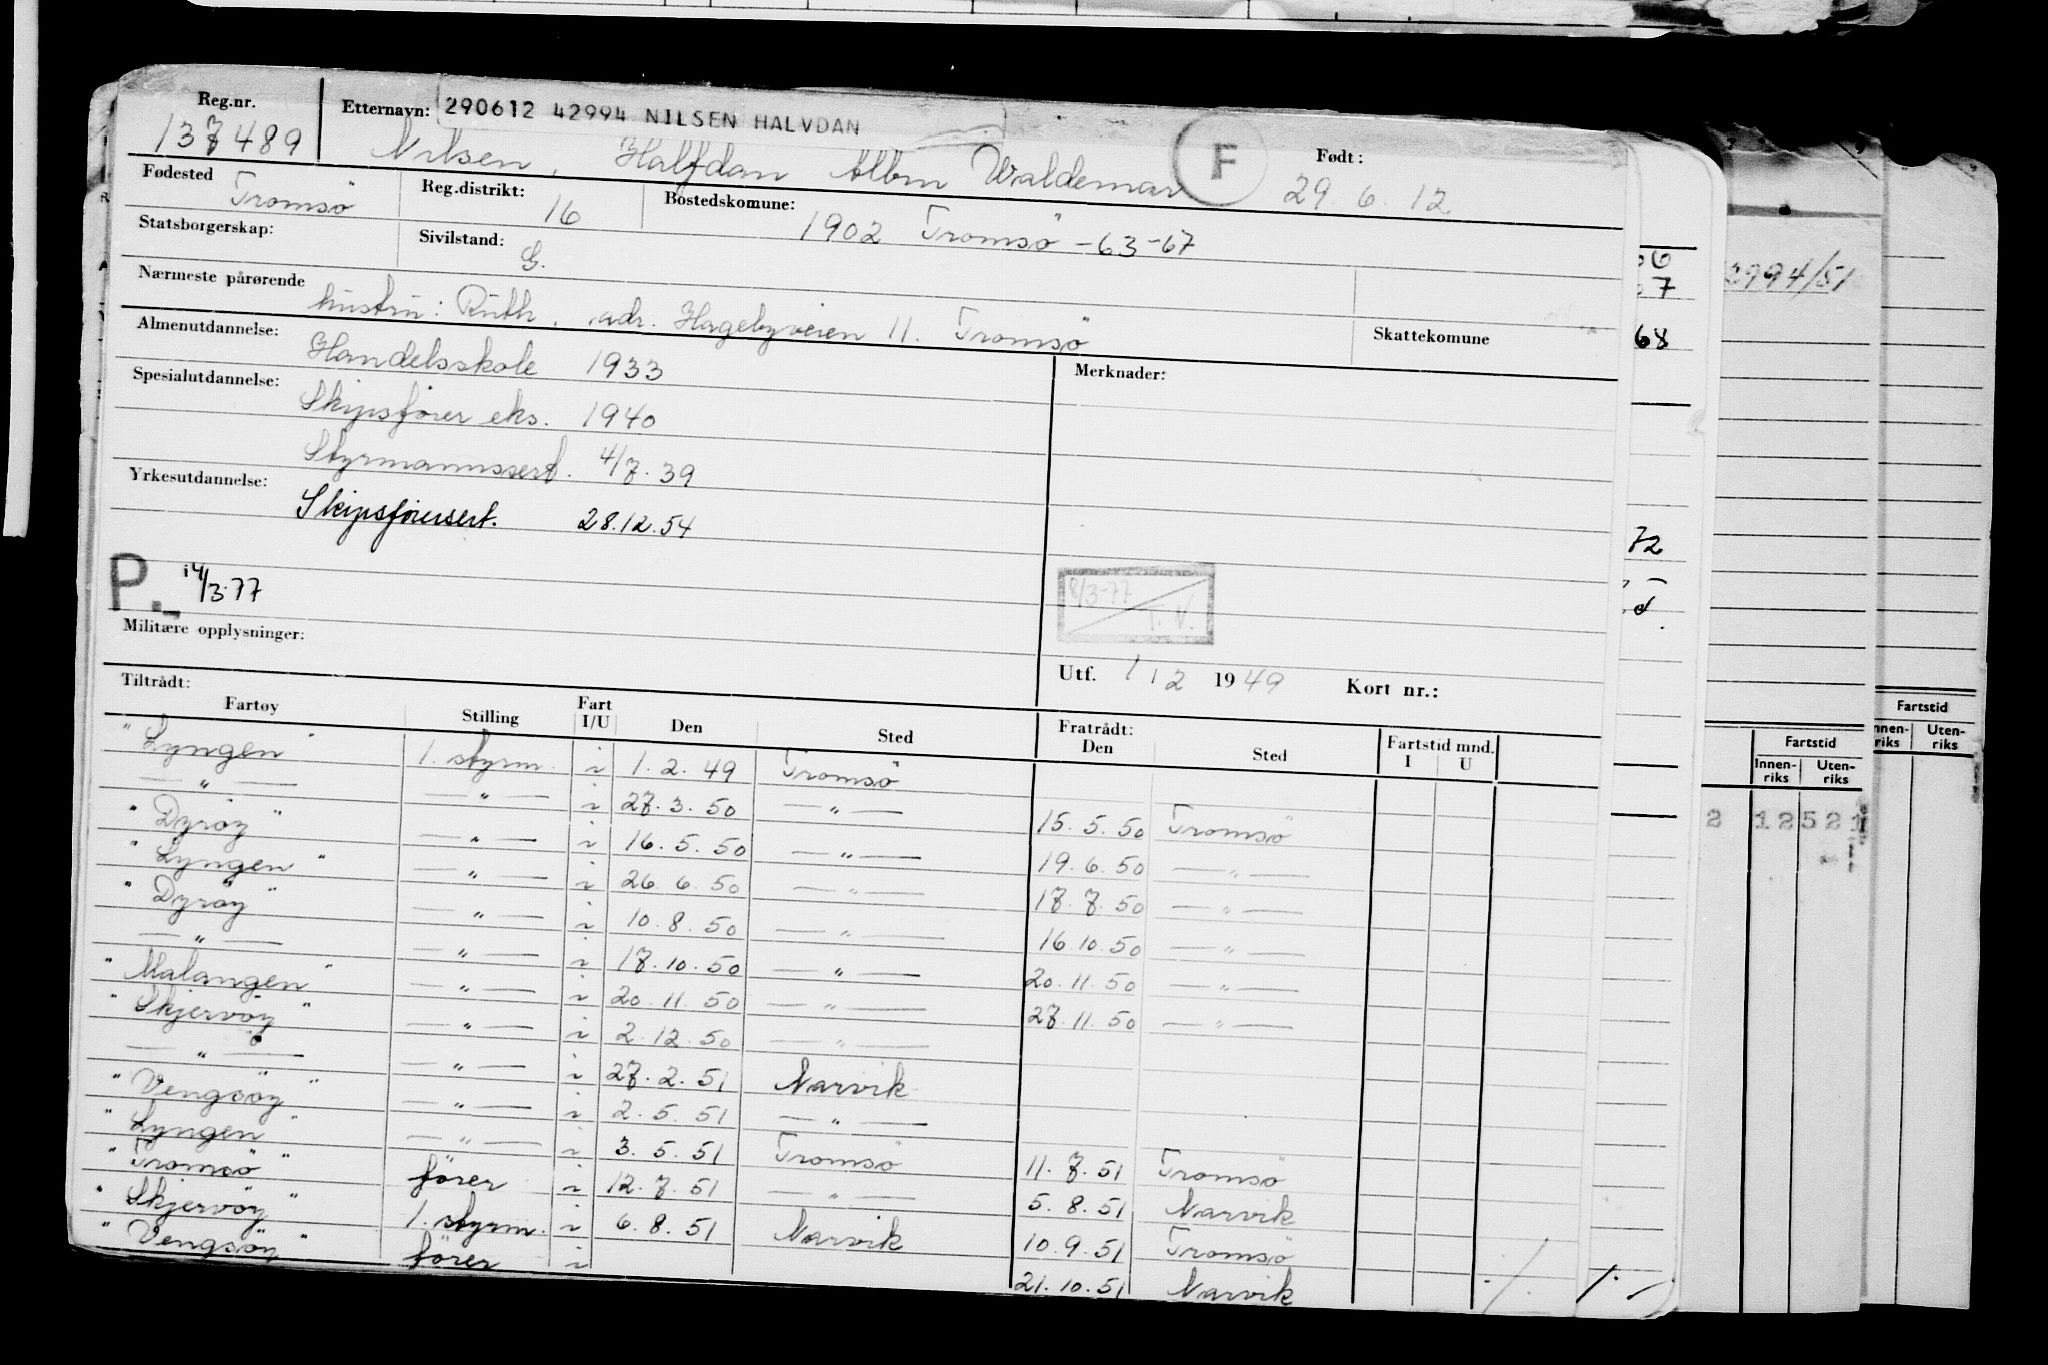 Reg.nr. 137489
Etternavn: 290612 42994 NILSEN HALVDAN
Nilsen, Halfdan Albin Waldemar F
Født: 29.6.12
Fødested Tromsö
Reg.distrikt: 16
Bostedskomune: 1902 Tromsö -63-67
Statsborgerskap:
Sivilstand: G.
Nærmeste pårørende hustru: Ruth, adr. Hagebyveien 11. Tromsö
Skattekomune
Almenutdannelse: Handelsskole 1933
Merknader:
Spesialutdannelse: Skipsförer eks. 1940
Styrmannssert. 4/7.39
Yrkesutdannelse: Skipsförersert. 28.12.54
P.
/3.77
8/3-77 T. N.
Militære opplysninger:
Utf. 1/2 1949 Kort nr.:
Tiltrådt:
Fartøy Stilling Fart I/U Den Sted Fratrådt: Den Sted Fartstid mnd. I U
"Lyngen" 1. styrm. i 1.2.49 Tromsö
—"— —"— i 27.3.50 —"— 15.5.50 Tromsö
"Dyröy" —"— i 16.5.50 —"— 19.6.50 —"—
"Lyngen" —"— i 26.6.50 —"— 17.7.50 —"—
"Dyröy" —"— i 10.8.50 —"— 16.10.50 —"—
—"— —"— i 17.10.50 —"— 20.11.50 —"—
"Malangen" —"— i 20.11.50 —"— 27.11.50 —"—
"Skjervöy" —"— i 2.12.50 —"—
—"— —"— i 27.2.51 Narvik
"Vengsöy" —"— i 2.5.51 —"—
"Lyngen" —"— i 3.5.51 Tromsö 11.7.51 Tromsö
"Tromsö" förer i 12.7.51 —"— 5.8.51 Narvik
"Skjervöy" 1. styrm. i 6.8.51 Narvik 10.9.51 Tromsö
"Vengsöy" förer i 21.10.51 Narvik
68
72
994/51
Fartstid
Innenriks Utenriks
2 12521
Fartstid
Utenriks